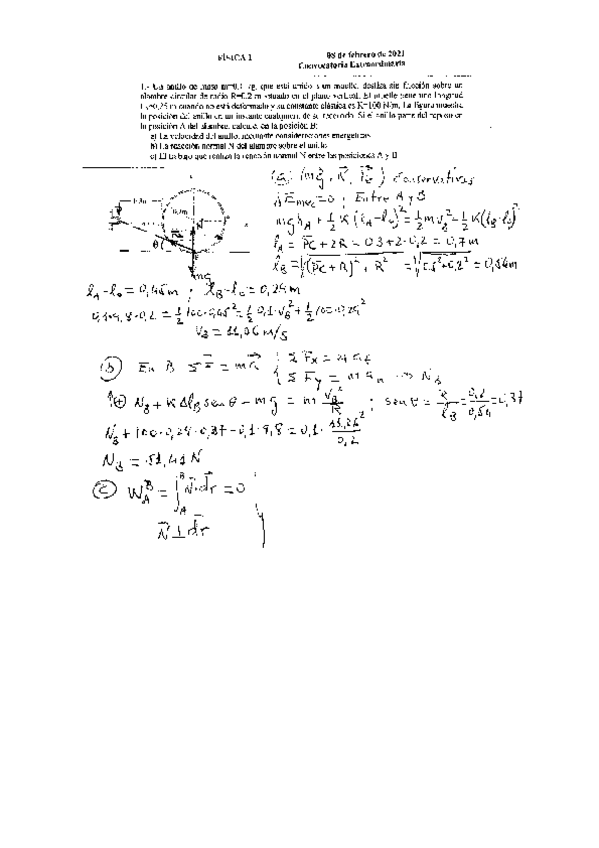 FÍSICA I
08 de febrero de 2021
Convocatoria Extraordinaria
1.- Un anillo de masa m=0.1 kg, que está unido a un muelle, desliza sin fricción sobre un
alambre circular de radio R=0.2 m situado en el plano vertical. El muelle tiene una longitud
l₀=0,25 m cuando no está deformado y su constante elástica es K=100 N/m. La figura muestra
la posición del anillo en un instante cualquiera de su recorrido. Si el anillo parte del reposo en
la posición A del alambre, calcular, en la posición B:
a) La velocidad del anillo, mediante consideraciones energéticas
b) La reacción normal N del alambre sobre el anillo
c) El trabajo que realiza la reacción normal N entre las posiciones A y B
(a) (mg, N, Fe) Conservativas
ΔEmec = 0 ; Entre A y B
mghA + 1/2 K (lA-l₀)² = 1/2 mvB² + 1/2 K(lB-l₀)²
lA = PC + 2R = 0.3+2·0,2 = 0,7 m
lB = √((PC+R)² + R²) = √(0.5²+0,2²) = 0,54m
lA-l₀ = 0,45m ; lB-l₀ = 0,29m
0,1·9,8·0,2 + 1/2 100·0,45² = 1/2 0,1·VB² + 1/2 100·0,29²
VB = 11,06 m/s
(b) En B ΣF = ma { ΣFx = m at
ΣFy = m an ⇒ NB
↑⊕ NB + KΔlB sen θ - mg = m VB²/R ; sen θ = R/lB = 0,2/0,54 = 0,37
NB + 100·0,29·0,37 - 0,1·9,8 = 0,1·
0,2
NB = 51,41 N
(c) WAB = ∫AB N·dr = 0
N ⊥ dr